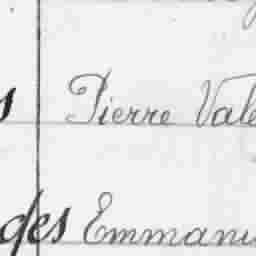 s Pierre Vale
des Emmanu